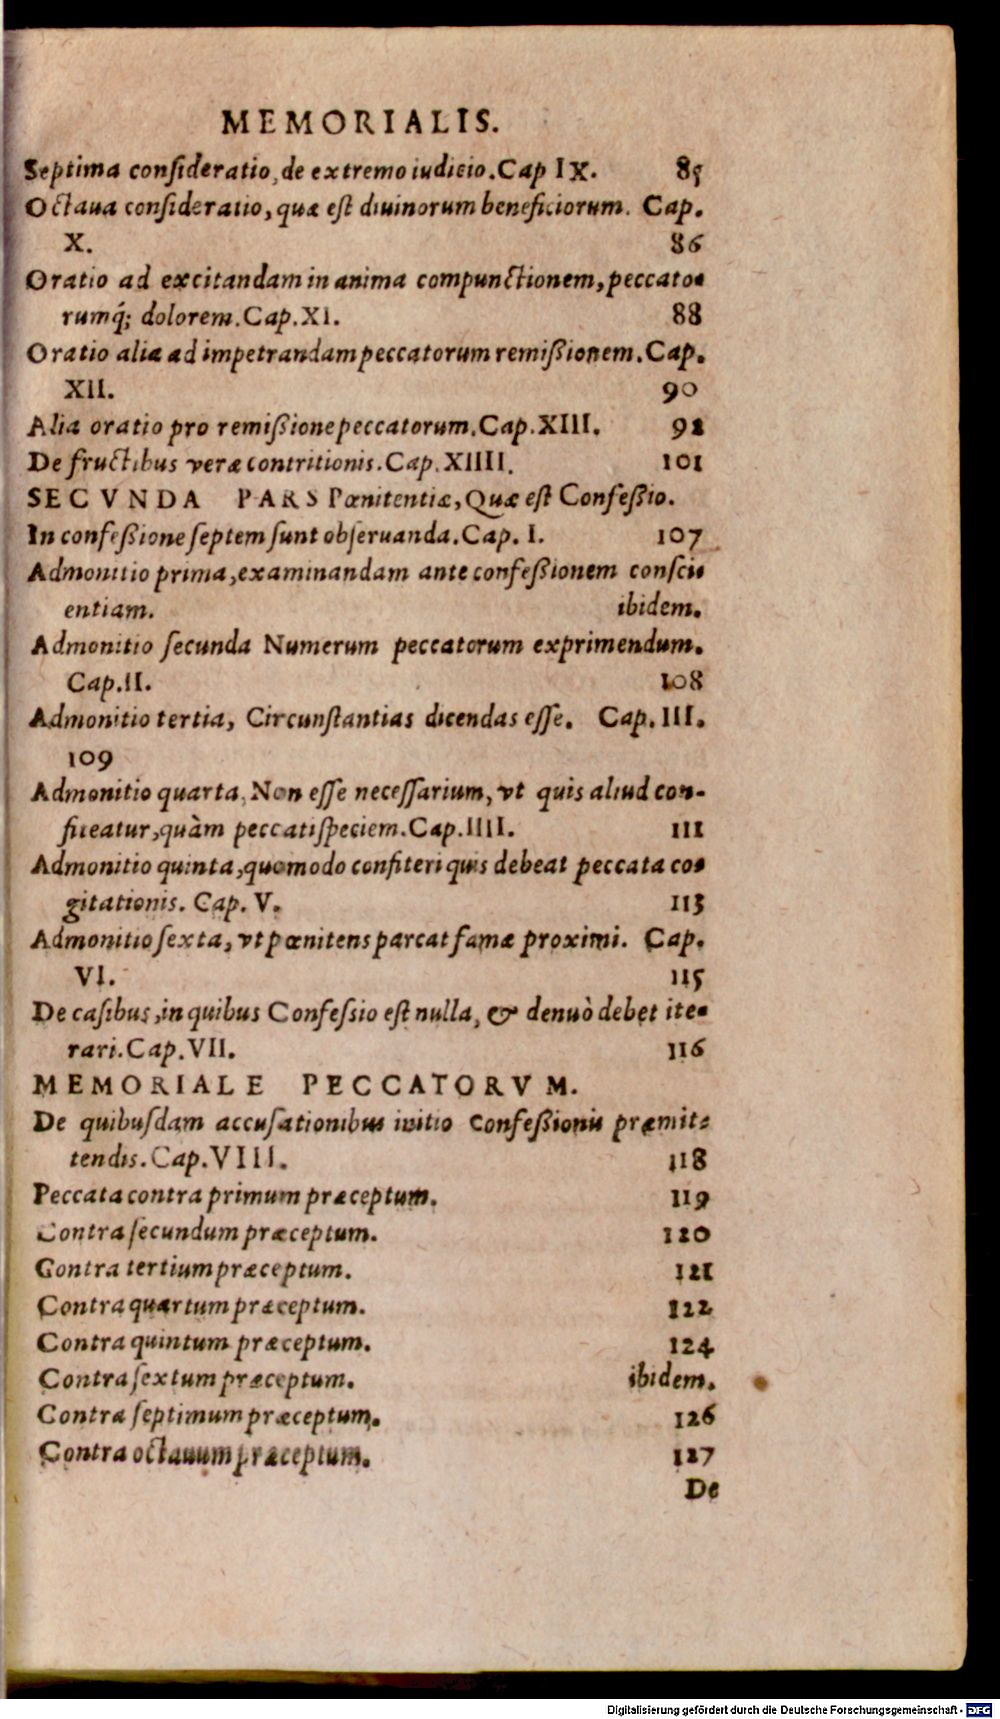 MEMORIALIS.
Septima consideratio, de extremo iudicio. Cap IX. 85
Octaua consideratio, quæ est diuinorum beneficiorum. Cap.
X. 86
Oratio ad excitandam in anima compunctionem, peccato-
rumq́; dolorem. Cap. XI. 88
Oratio alia ad impetrandam peccatorum remißionem. Cap.
XII. 90
Alia oratio pro remißione peccatorum. Cap. XIII. 92
De fructibus veræ contritionis. Cap. XIIII. 101
SECVNDA PARS Pœnitentiæ, Quæ est Confeßio.
In confeßione septem sunt obseruanda. Cap. I. 107
Admonitio prima, examinandam ante confeßionem consci-
entiam. ibidem.
Admonitio secunda Numerum peccatorum exprimendum.
Cap. II. 108
Admonitio tertia, Circunstantias dicendas esse. Cap. III.
109
Admonitio quarta, Non esse necessarium, vt quis aliud con-
fiteatur, quàm peccati speciem. Cap. IIII. 111
Admonitio quinta, quomodo confiteri quis debeat peccata co-
gitationis. Cap. V. 113
Admonitio sexta, vt pœnitens parcat famæ proximi. Cap.
VI. 115
De casibus, in quibus Confessio est nulla, & denuò debet ite-
rari. Cap. VII. 116
MEMORIALE PECCATORVM.
De quibusdam accusationibus initio Confeßionis præmit-
tendis. Cap. VIII. 118
Peccata contra primum præceptum. 119
Contra secundum præceptum. 120
Contra tertium præceptum. 121
Contra quartum præceptum. 122
Contra quintum præceptum. 124
Contra sextum præceptum. ibidem.
Contra septimum præceptum. 126
Contra octauum præceptum. 127
De
Digitalisierung gefördert durch die Deutsche Forschungsgemeinschaft - DFG